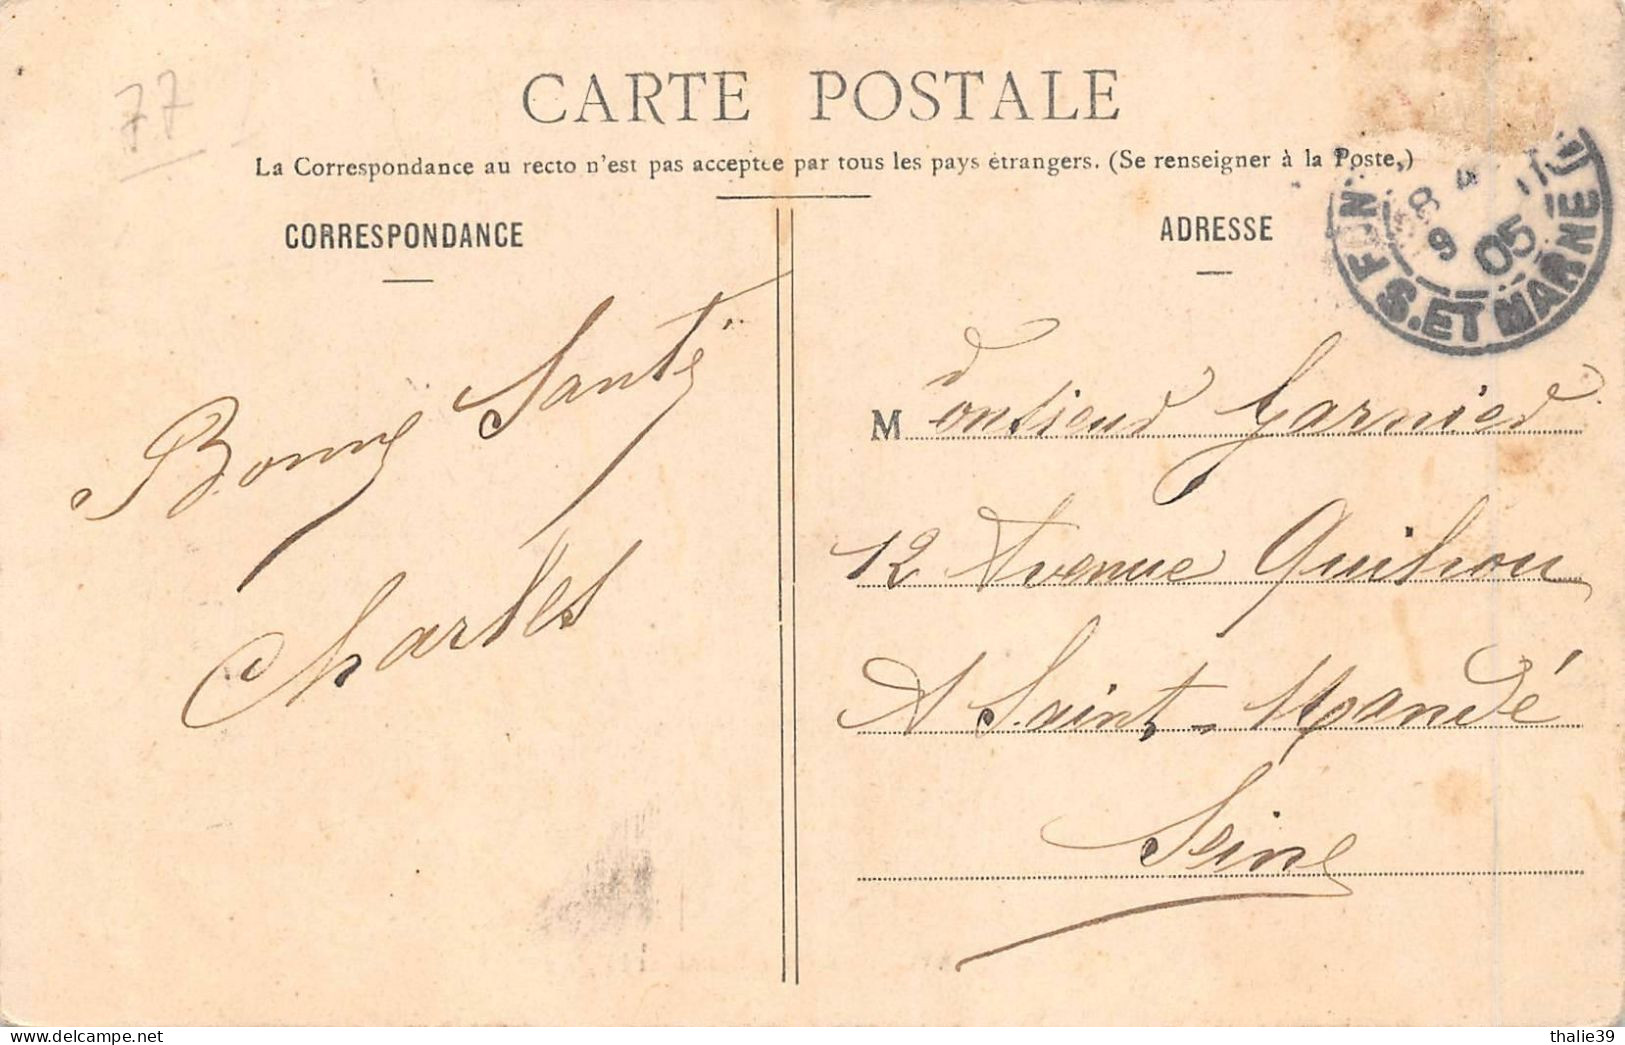 77
CARTE POSTALE
La Correspondance au recto n'est pas acceptée par tous les pays étrangers. (Se renseigner à la Poste,)
CORRESPONDANCE
ADRESSE
S. ET MARNE
05
Bonne Santé
Charles
Monsieur Garnier
12 Avenue Quihou
A Saint-Mandé
Seine
delcampe.net
thalie39